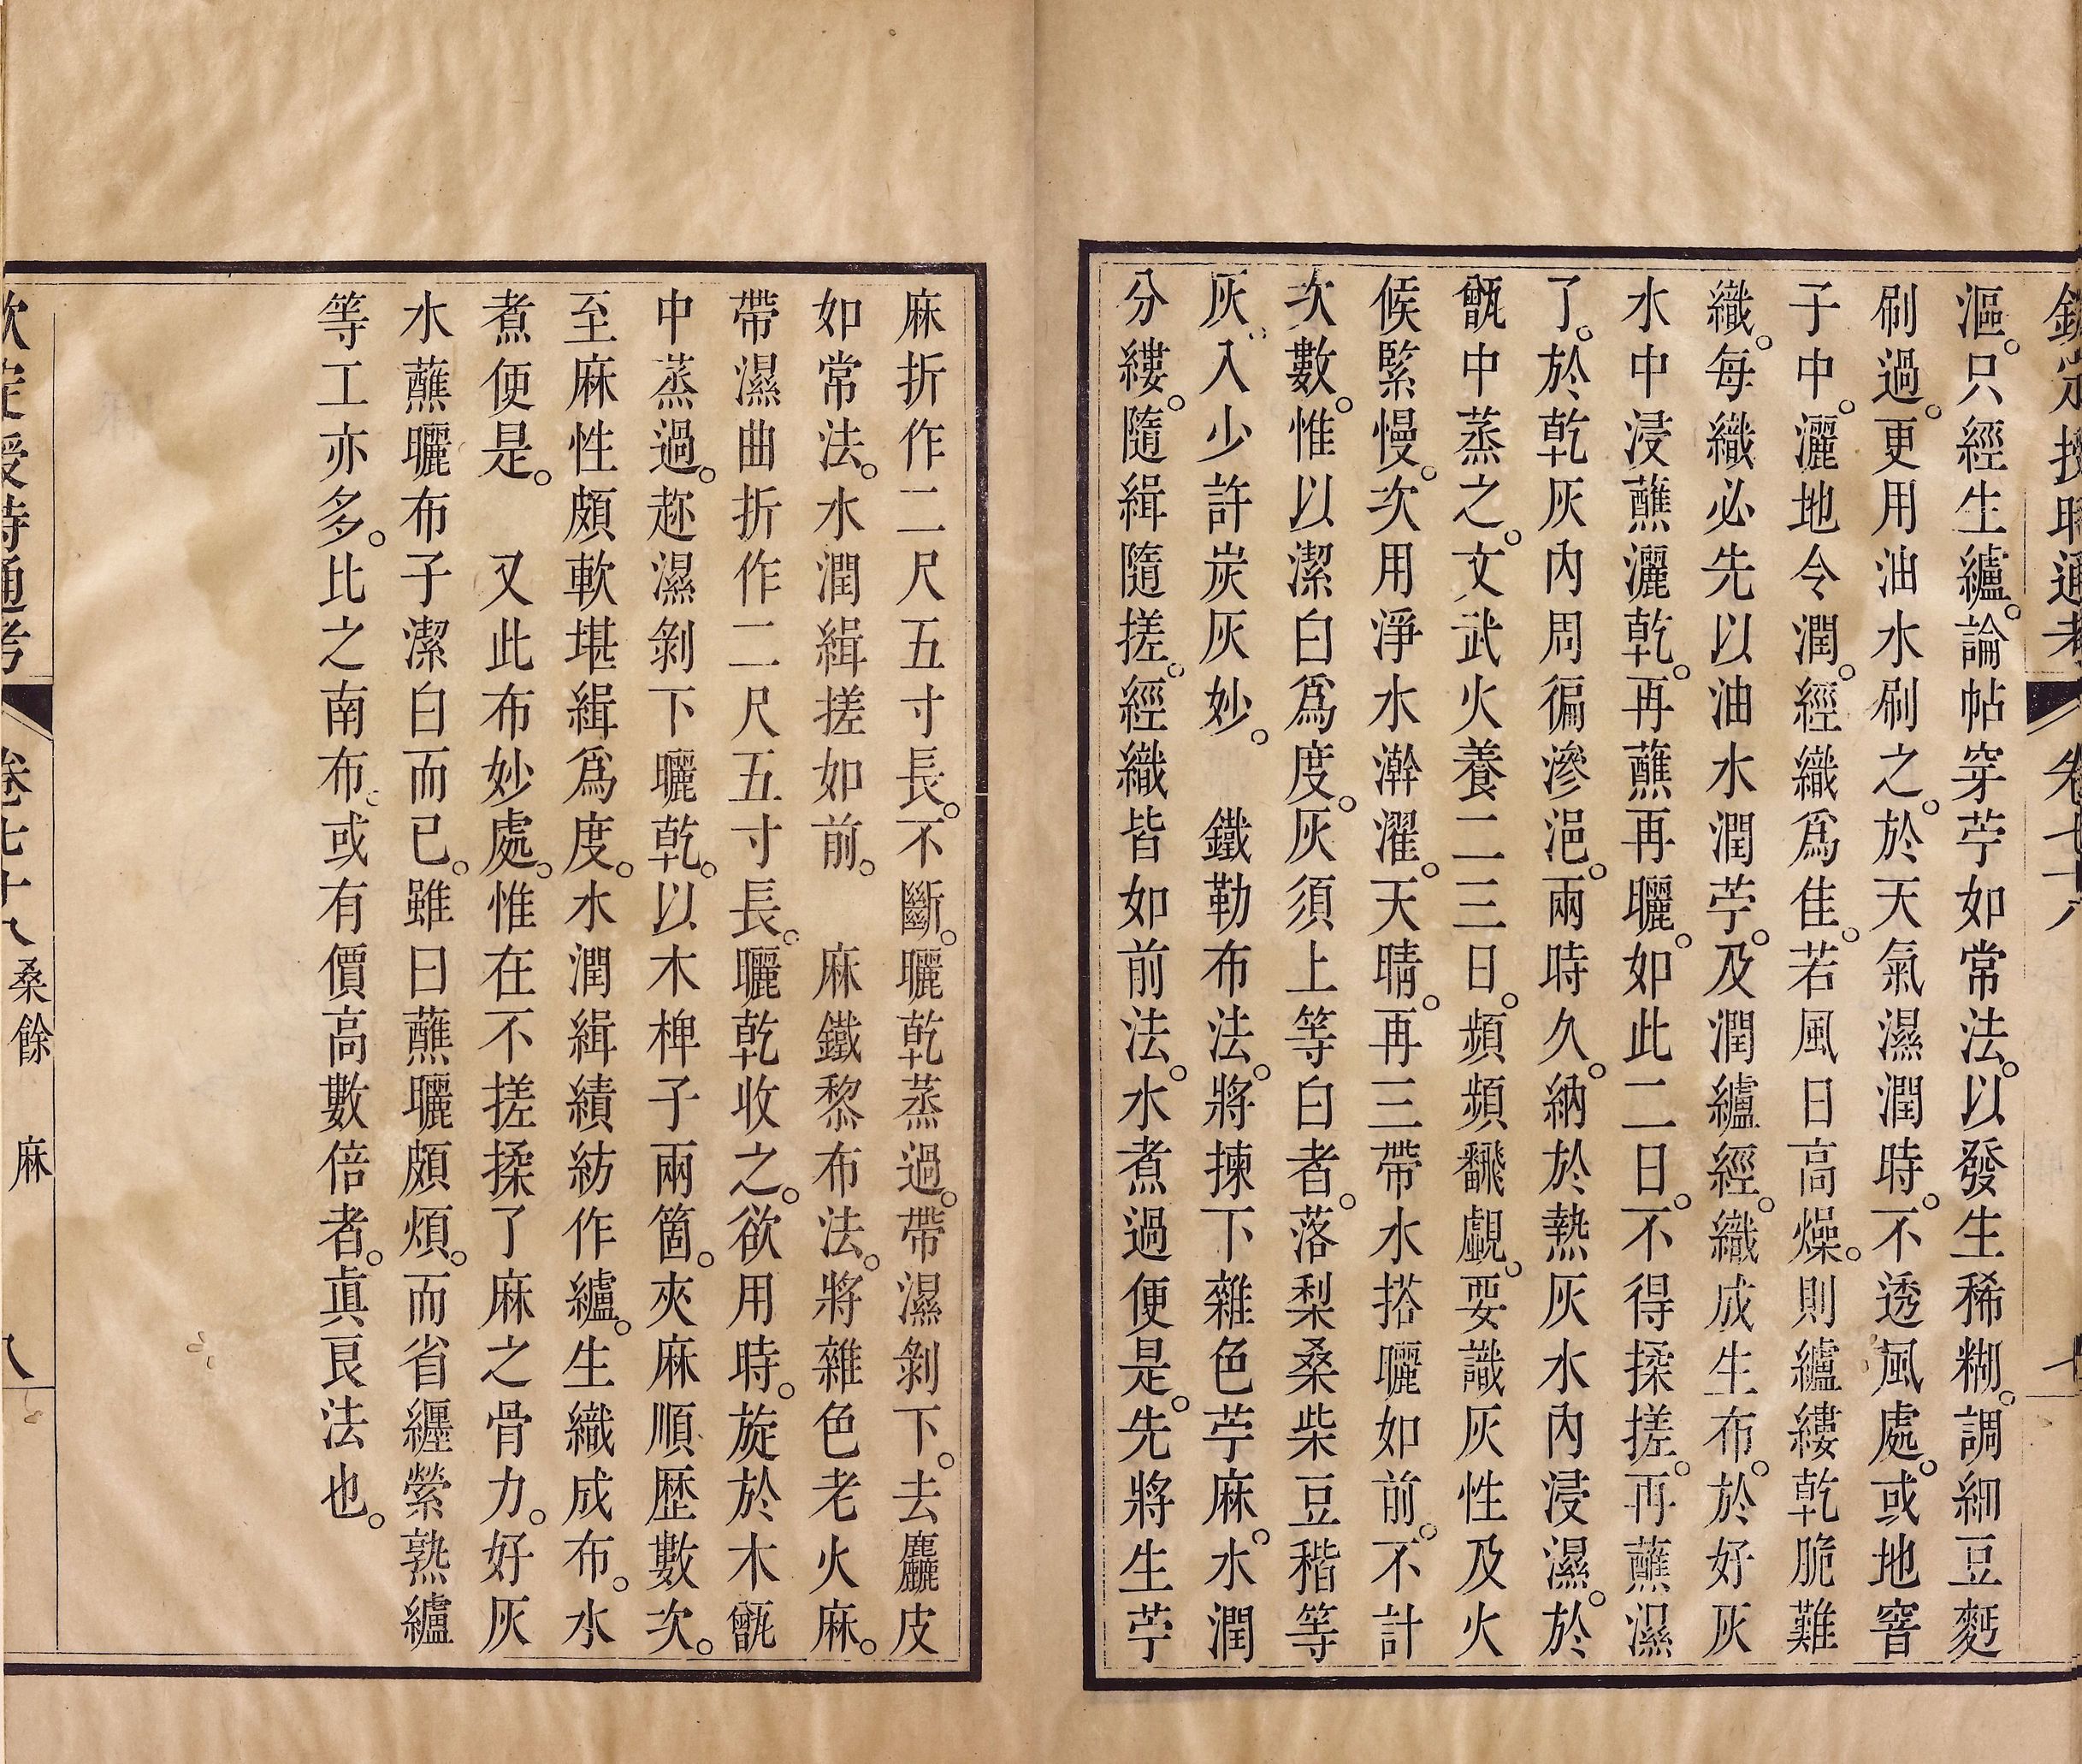 欽定授時通考 卷七十八 七
漚。只經生纑。論帖穿苧如常法。以發生稀糊。調細豆麪
刷過。更用油水刷之。於天氣濕潤時。不透風處。或地窨
子中。灑地令潤。經織爲佳。若風日高燥。則纑縷乾脆難
織。每織必先以油水潤苧。及潤纑經。織成生布。於好灰
水中浸蘸灑乾。再蘸再曬。如此二日。不得揉搓。再蘸濕
了。於乾灰內周徧滲浥。兩時久。納於熱灰水內浸濕。於
甑中蒸之。文武火養二三日。頻頻飜覷。要識灰性及火
候緊慢。次用淨水澣濯。天晴。再三帶水搭曬如前。不計
次數。惟以潔白爲度。灰須上等白者。落梨桑柴豆稭等
灰。入少許炭灰妙。 鐵勒布法。將揀下雜色苧麻。水潤
分縷。隨緝隨搓。經織皆如前法。水煮過便是。先將生苧
麻折作二尺五寸長。不斷。曬乾蒸過。帶濕剝下。去麤皮
如常法。水潤緝搓如前。 麻鐵黎布法。將雜色老火麻。
帶濕曲折作二尺五寸長。曬乾收之。欲用時。旋於木甑
中蒸過。趂濕剝下曬乾。以木椑子兩箇。夾麻順歷數次。
至麻性頗軟堪緝爲度。水潤緝績紡作纑。生織成布。水
煮便是。 又此布妙處。惟在不搓揉了麻之骨力。好灰
水蘸曬布子潔白而已。雖曰蘸曬頗煩。而省纒縈熟纑
等工亦多。比之南布。或有價高數倍者。眞良法也。
欽定授時通考 卷七十八 桑餘 麻 八